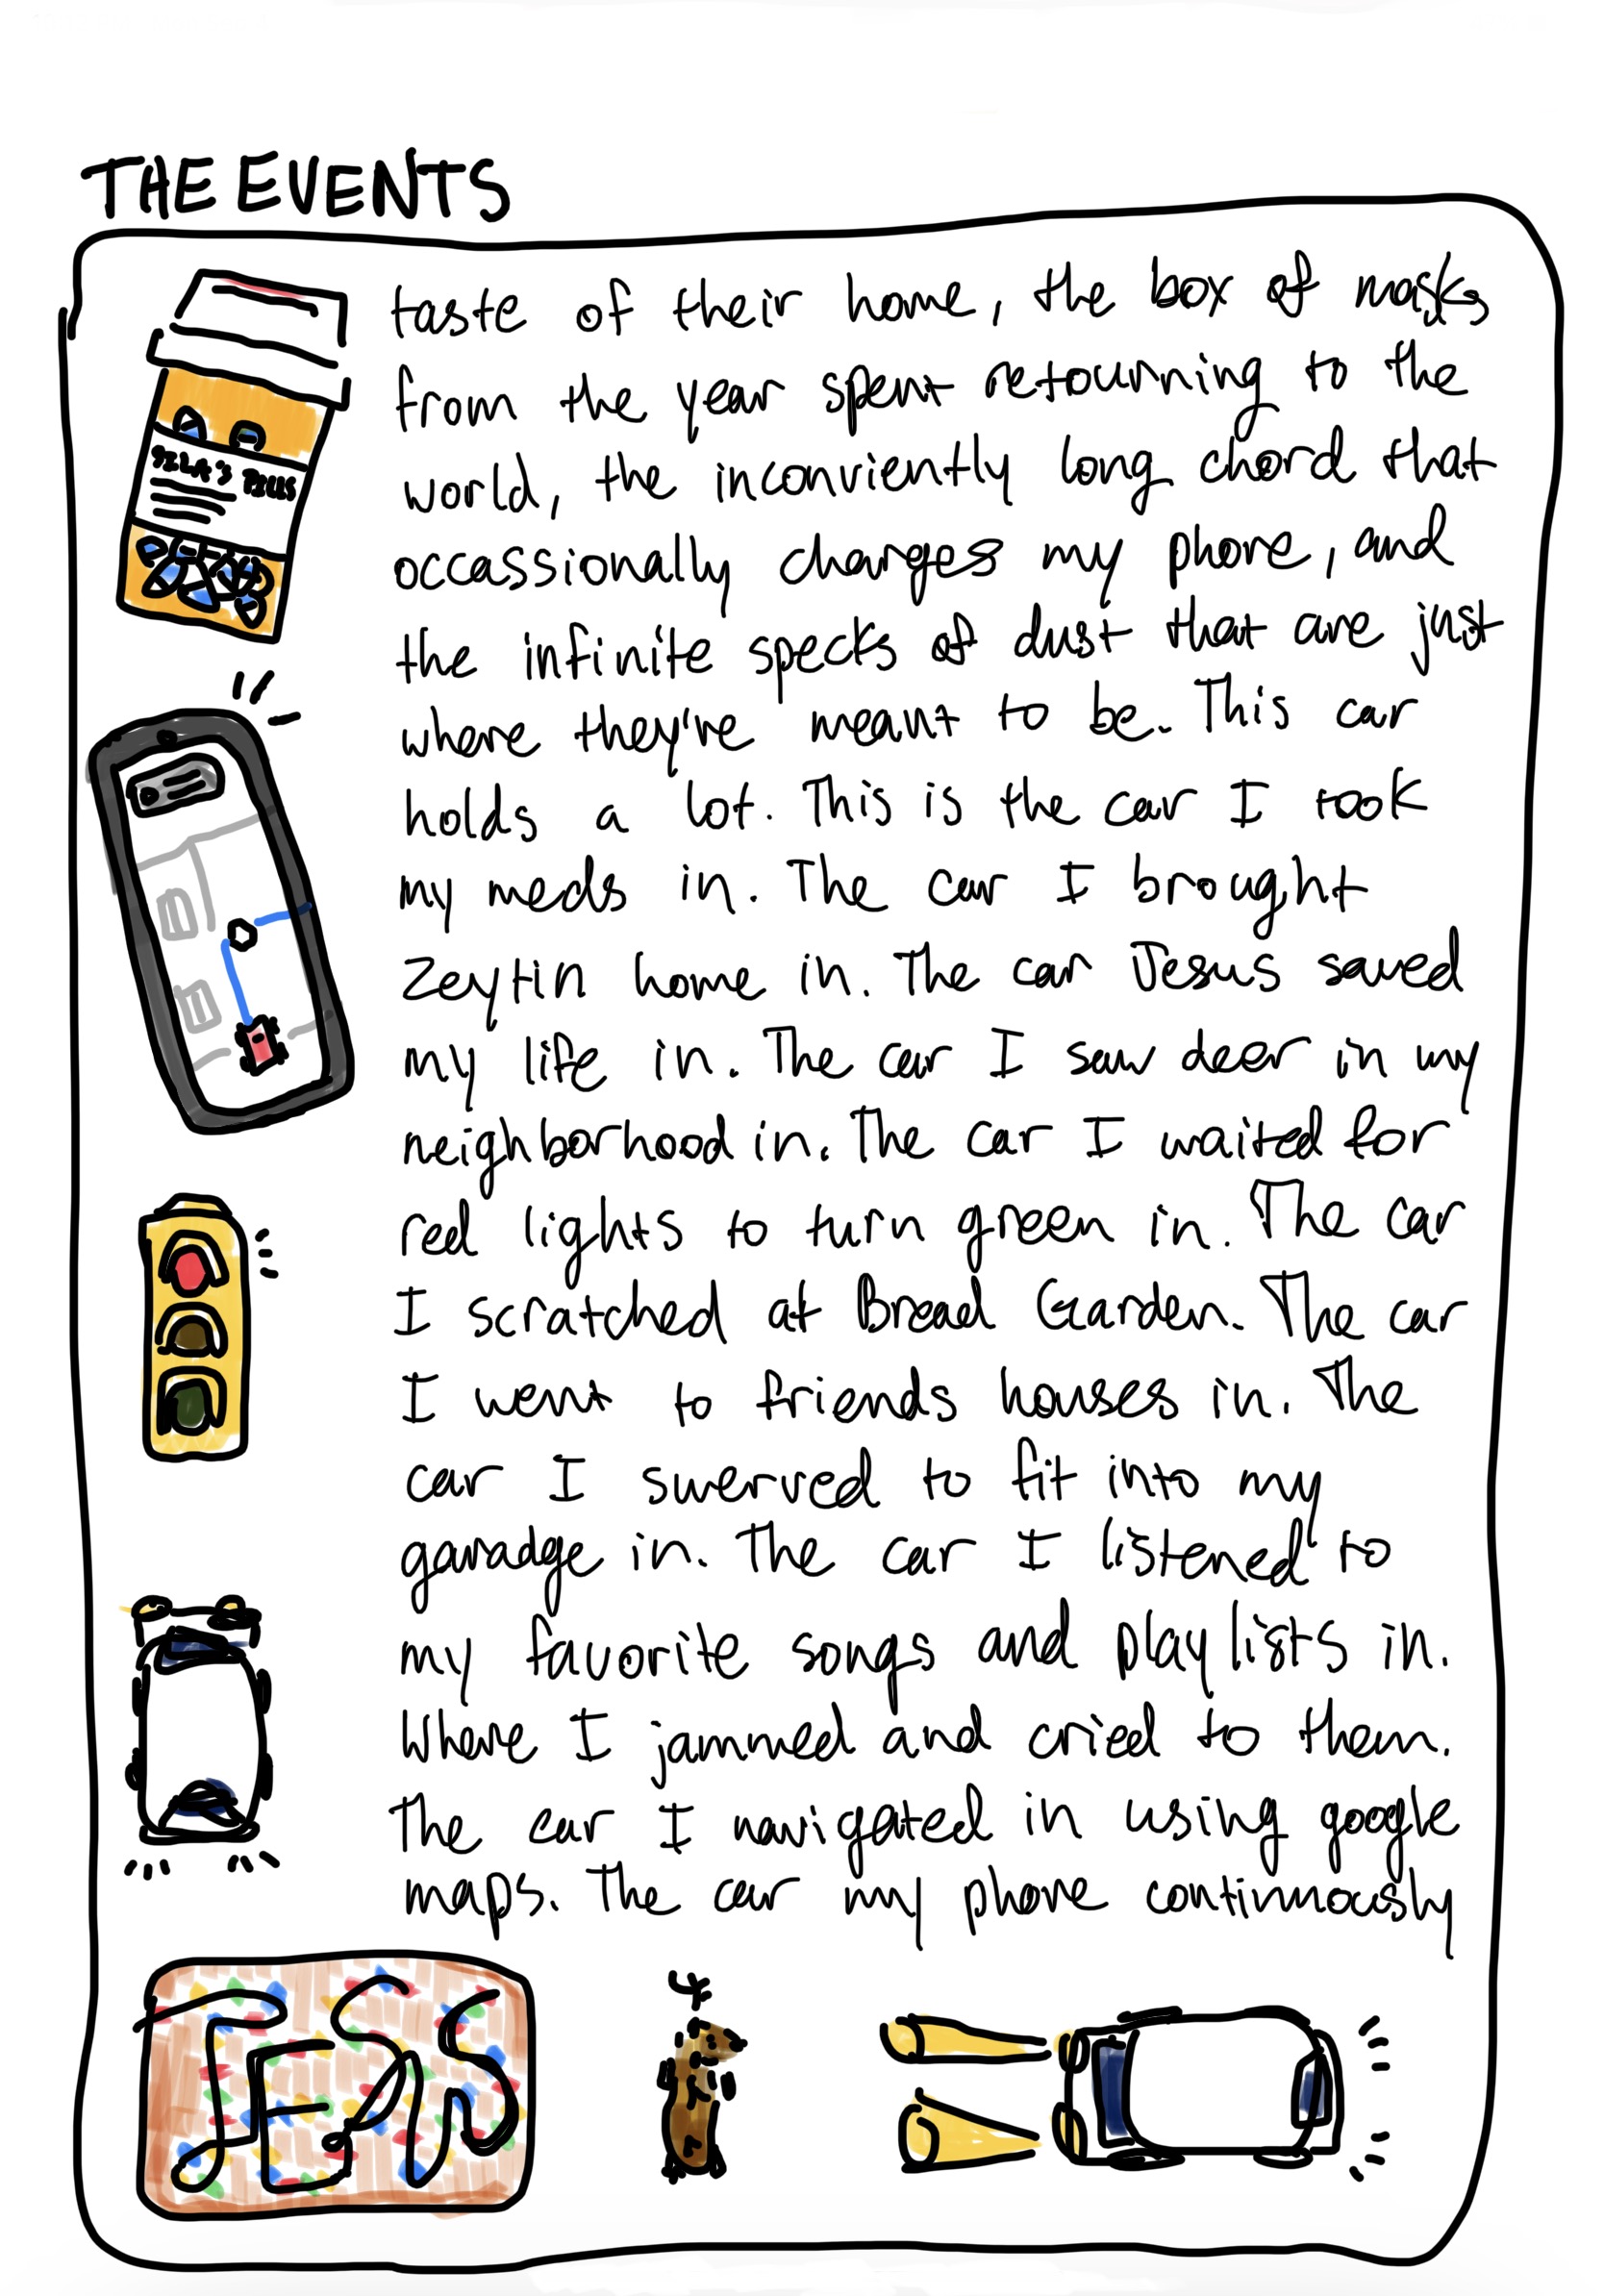 THE EVENTS
taste of their home, the box of masks
from the year spent retourning to the
world, the inconviently long chord that
occassionally charges my phone, and
the infinite specks of dust that are just
where they're meant to be. This car
holds a lot. This is the car I took
my meds in. The car I brought
Zeytin home in. The car Jesus saved
my life in. The car I saw deer in my
neighborhood in. The car I waited for
red lights to turn green in. The car
I scratched at Bread Garden. The car
I went to friends houses in. The
car I swerved to fit into my
garadge in. The car I listened to
my favorite songs and playlists in.
Where I jammed and cried to them.
The car I navigated in using google
maps. The car my phone continuously
SILA'S PILLS
JESUS